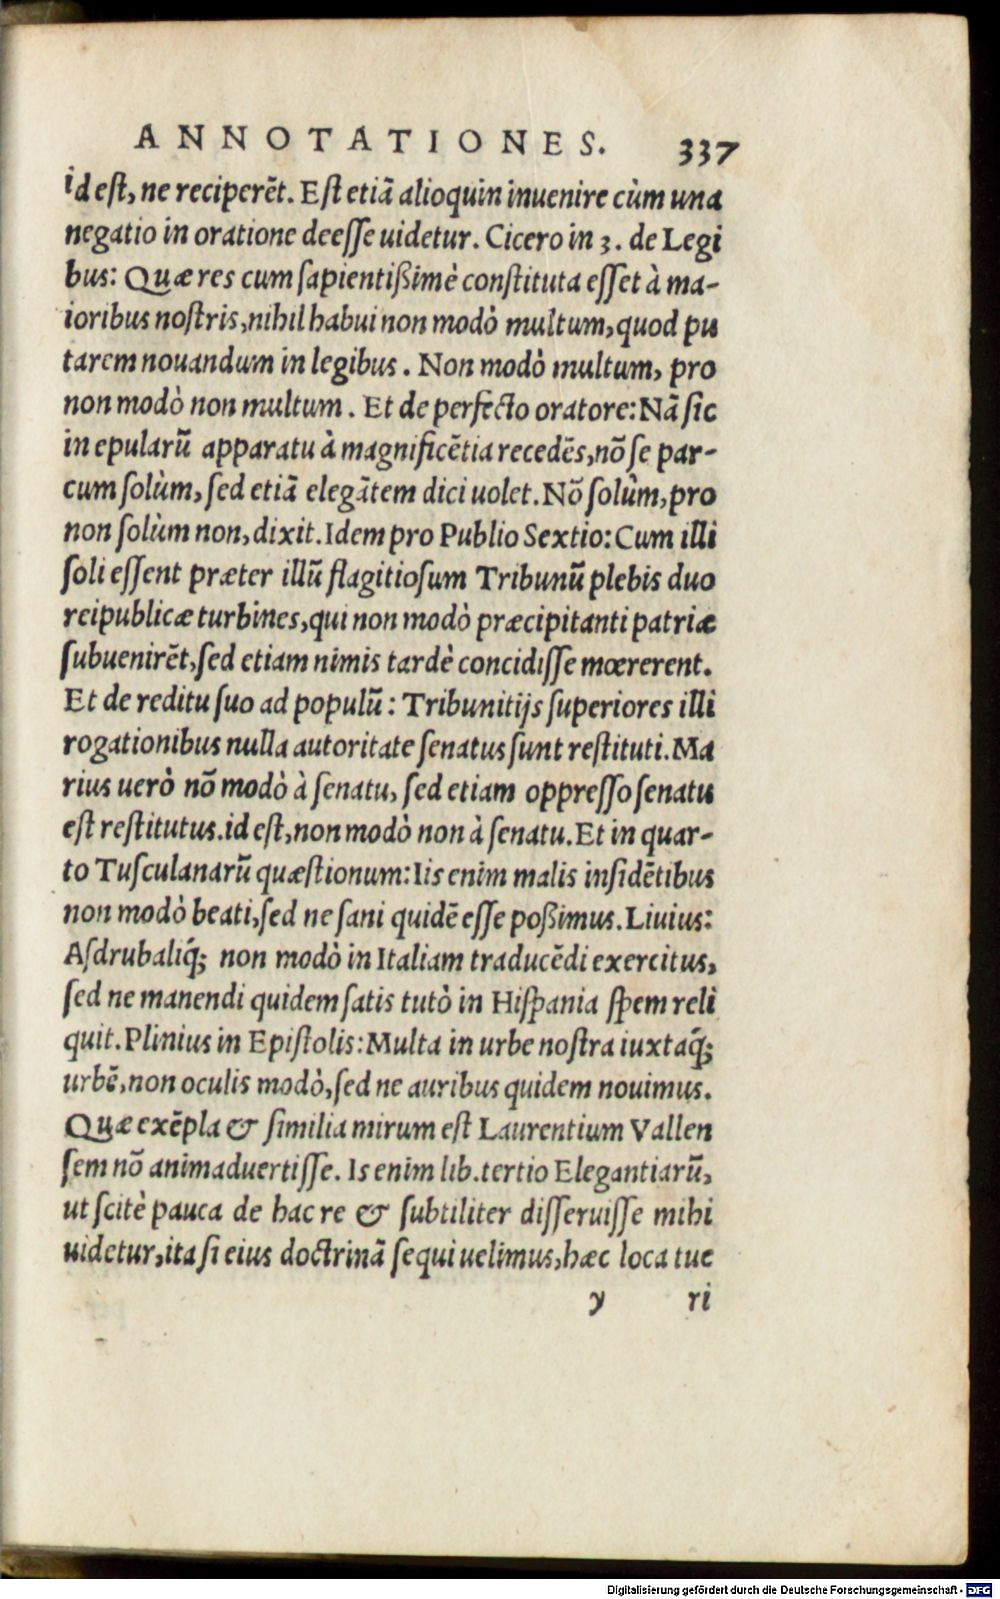 ANNOTATIONES. 337
id est, ne reciperēt. Est etiā alioquin inuenire cùm una
negatio in oratione deesse uidetur. Cicero in 3. de Legi
bus: Quæ res cum sapientißimè constituta esset à ma-
ioribus nostris, nihil habui non modò multum, quod pu
tarem nouandum in legibus. Non modò multum, pro
non modò non multum. Et de perfecto oratore: Nā sic
in epularū apparatu à magnificētia recedēs, nō se par-
cum solùm, sed etiā elegātem dici uolet. Nō solùm, pro
non solùm non, dixit. Idem pro Publio Sextio: Cum illi
soli essent præter illū flagitiosum Tribunū plebis duo
reipublicæ turbines, qui non modò præcipitanti patriæ
subuenirēt, sed etiam nimis tardè concidisse mœrerent.
Et de reditu suo ad populū: Tribunitijs superiores illi
rogationibus nulla autoritate senatus sunt restituti. Ma
rius uerò nō modò à senatu, sed etiam oppresso senatu
est restitutus. id est, non modò non à senatu. Et in quar-
to Tusculanarū quæstionum: Iis enim malis insidētibus
non modò beati, sed ne sani quidē esse poßimus. Liuius:
Asdrubaliq́; non modò in Italiam traducēdi exercitus,
sed ne manendi quidem satis tutò in Hispania spem reli
quit. Plinius in Epistolis: Multa in urbe nostra iuxtaq́;
urbē, non oculis modò, sed ne auribus quidem nouimus.
Quæ exēpla & similia mirum est Laurentium Vallen
sem nō animaduertisse. Is enim lib. tertio Elegantiarū,
ut scitè pauca de hac re & subtiliter disseruisse mihi
uidetur, ita si eius doctrinā sequi uelimus, hæc loca tue
y ri
Digitalisierung gefördert durch die Deutsche Forschungsgemeinschaft - DFG